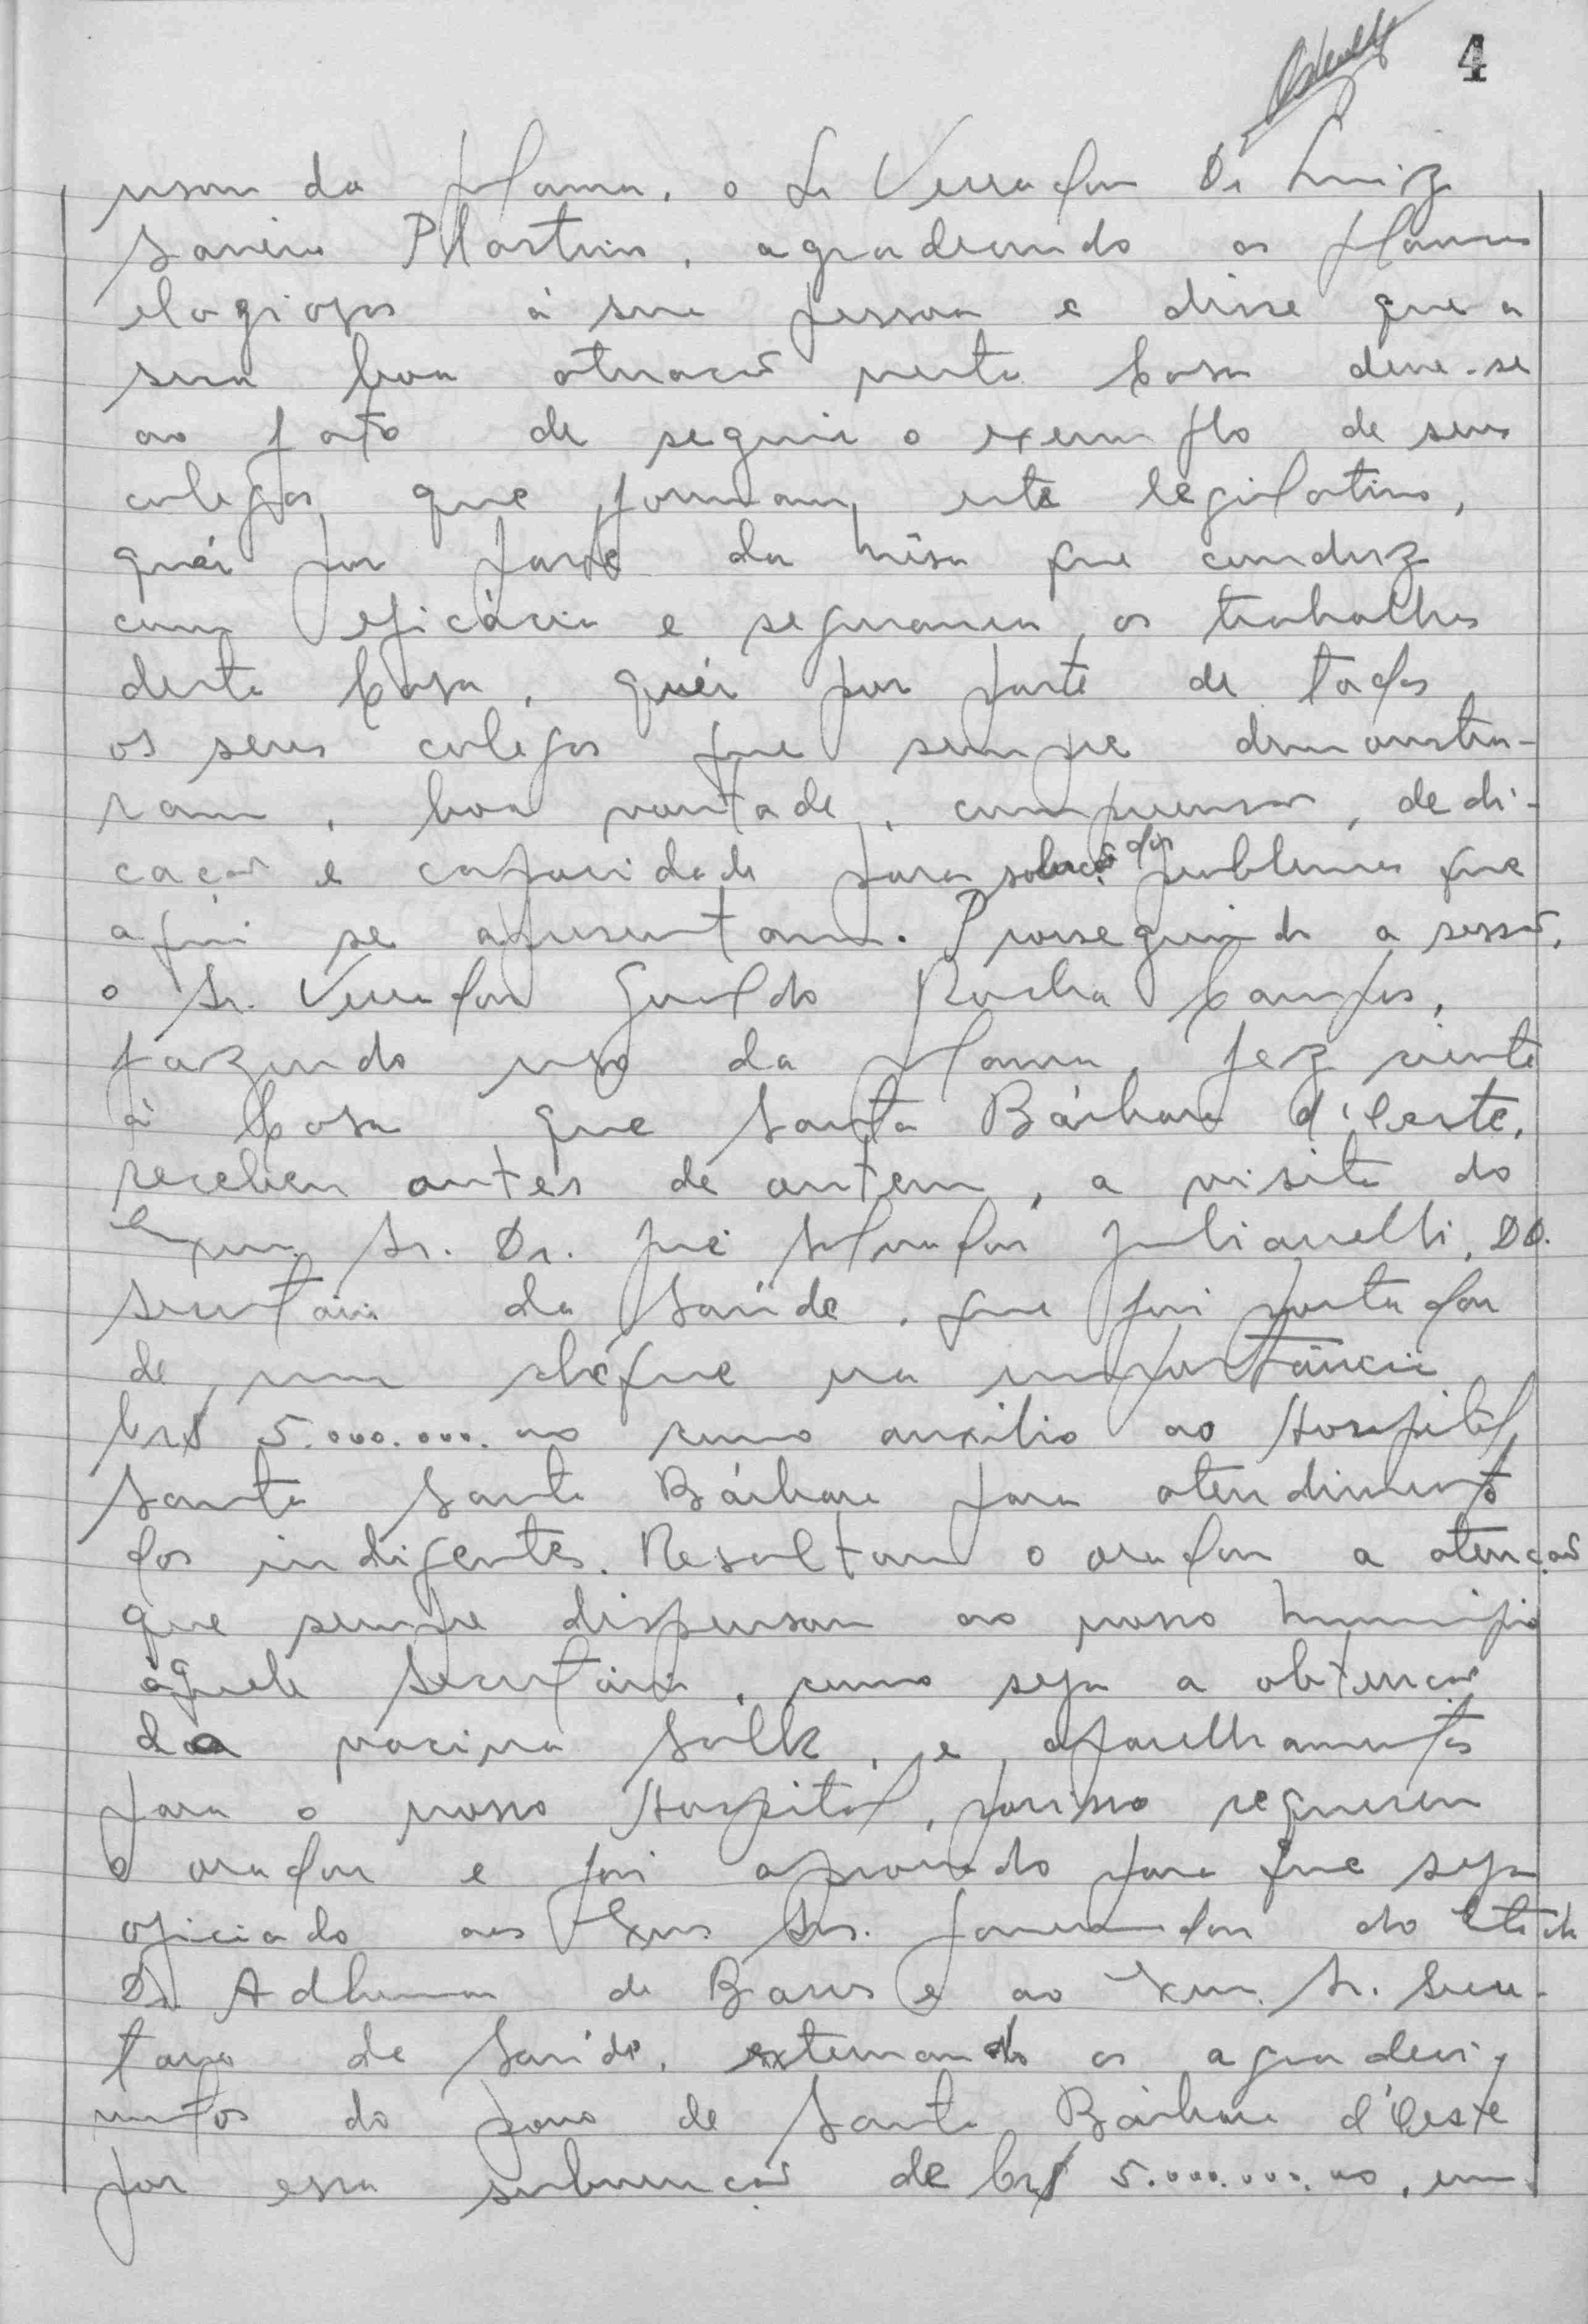 4
usou da palavra, o Sr Vereador Dr Luiz
Martins, agradecendo as palavras
elogiosas à sua pessoa e disse que a
sua boa atuação nesta Casa deve-se
ao fato de seguir o exemplo de seus
colegas que formam este legislativo,
quér por parte da mêsa que conduz
com eficácia e segurança, os trabalhos
desta Casa, quér por parte de todos
os seus colegas que sempre demonstra-
ram, boa vontade, compreensão, dedi-
cação e capacidade para solução dos problemas que
aqui se apresentam. Prosseguindo a sessão,
o Sr. Vereador Geraldo Rocha Campos,
fazendo uso da palavra, fez ciente
à Casa que Santa Bárbara d'Oeste,
recebeu antes de ontem, a visita do
Exmo. Sr. Dr. José Salvador Julianelli, DD.
secretário da Saúde, que foi portador
de um chéque na importância
Cr$ 5.000.000,00 como auxilio ao Hospital
Santa Santa Bárbara para atendimento
dos indigentes. Resaltou o orador a atenção
que sempre dispensou ao nosso município
àquele secretário, como seja a obtenção
da vacina Salk, e aparelhamentos
para o nosso Hospital, por isso requereu
o orador e foi aprovado para que seja
oficiado aos Exmos Srs. Governador do Estado
Dr. Adhemar de Barros e ao Exmo. Sr. Secre-
tario de Saúde, externando os agradeci-
mentos do povo de Santa Bárbara d'Oeste
por essa subvenção de Cr$ 5.000.000,00, em